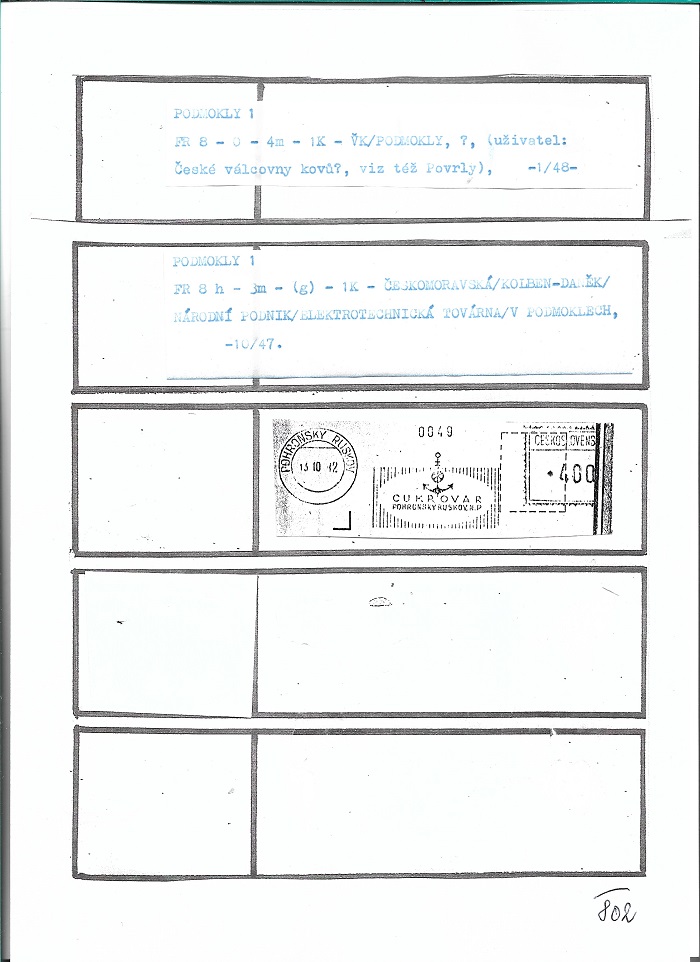 PODMOKLY 1
FR 8 - 0 - 4m - 1K - VK/PODMOKLY, ?, (uživatel:
České válcovny kovů?, viz též Povrly), -1/48-
PODMOKLY 1
FR 8 h - 3m - (g) - 1K - ČESKOMORAVSKÁ/KOLBEN-DANĚK/
NÁRODNÍ PODNIK/ELEKTROTECHNICKÁ TOVÁRNA/V PODMOKLECH,
-10/47.
0049
POHRONSKÝ RUSKOV
13 10
ČESKOSLOVENS
400
CUKROVAR
POHRONSKÝ RUSKOV, N.P.
802